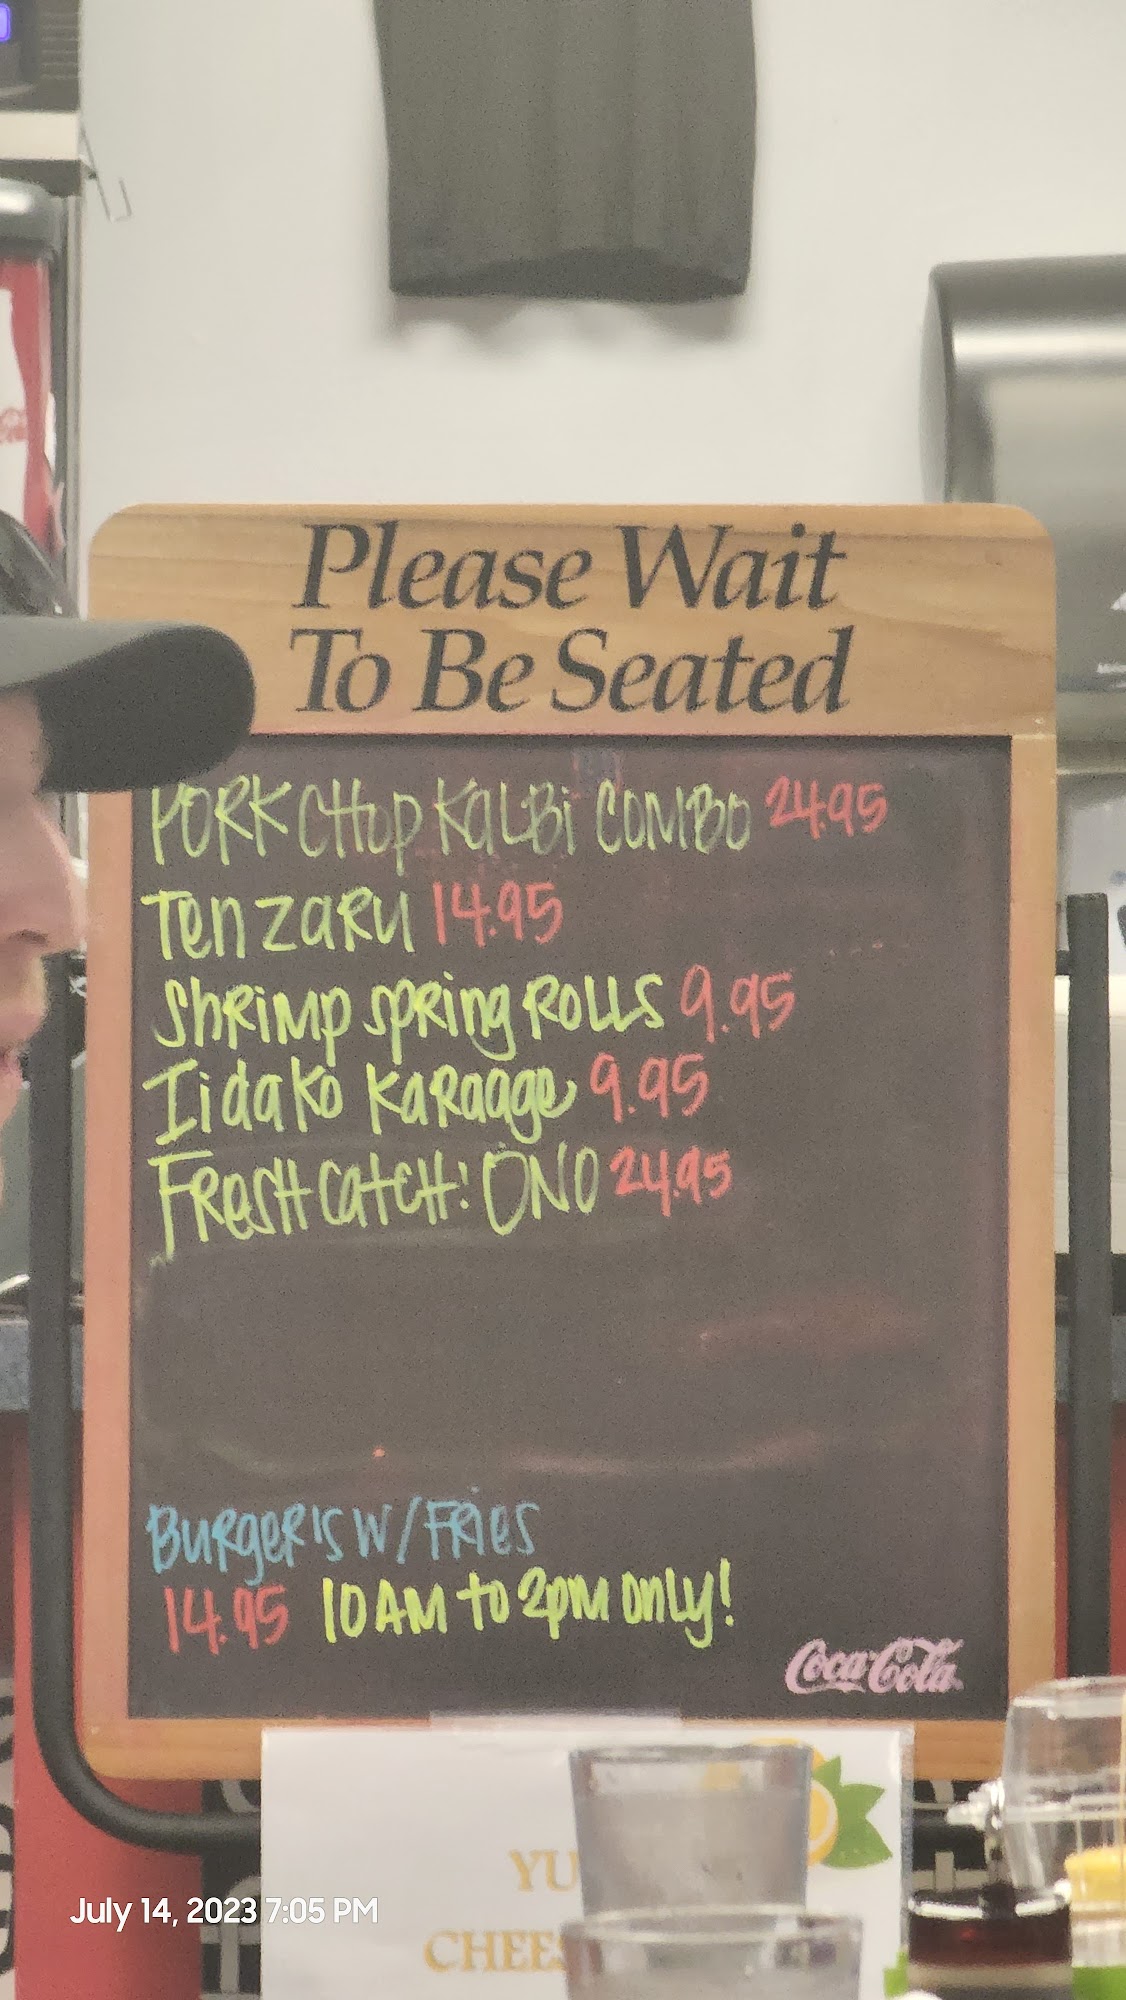 Please Wait
To Be Seated
PORK CHOP KALBI COMBO 24.95
Ten zaRu 14.95
ShRimp spRing ROLLS 9.95
Iidako KaRaage 9.95
FResH CatcH: ONO 24.95
BuRgeRs W/FRies
14.95 10AM to 2pm only!
Coca-Cola
July 14, 2023 7:05 PM